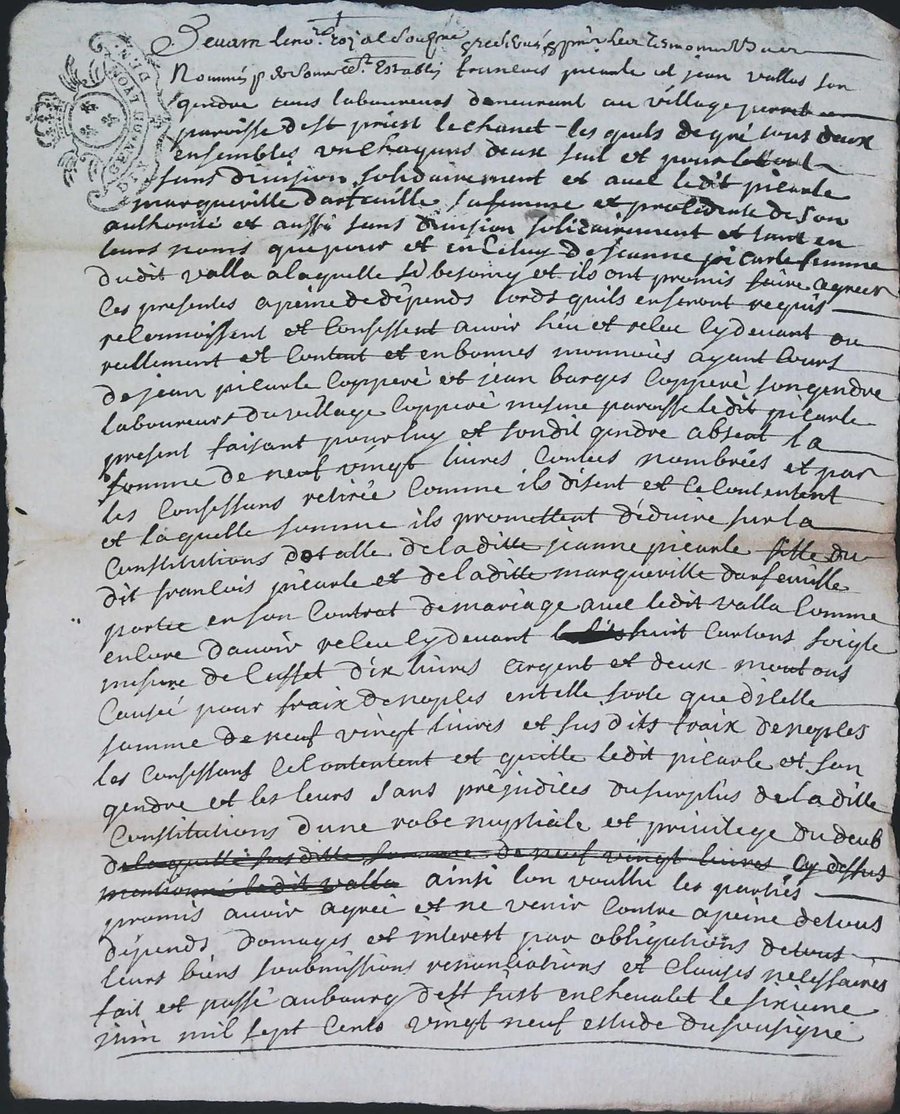 GEN.DE LYON
DEN.
Devant le no.re royal Sousigné
nommés Establis francois picarle et jean vallas son
gendre tous laboureurs demeurant au village
paroisse de st priest lechanet lesquels de gré tous deux
ensembles un chaquns deux seul et pour le tout
sans division solidairement et avec ledit picarle
margueritte darfeuille sa femme et procédente de son
authorité et aussi sans division solidairement et tant en
leurs noms que pour et en de Jeanne picarle femme
dudit valla a laquelle sy besoing et ils ont promis faire agreer
ces presentes a peine de dépends lords quils en seront requis
reconnoissent et Confessent avoir heu et receu cy devant
reellement et Content et en bonnes monnoies ayant Cours
de jean picarle Copperé et jean barges Copperé son gendre
laboureurs du village Copperé mesme paroisse ledit picarle
present faisant pour luy et sondit gendre absent la
somme de neuf vingt livres Contees nombrées et par
les Confessans retirée Comme ils disent et ce Contentent
et laquelle somme ils promettent déduire sur la
Constitutions dotalle de laditte jeanne picarle fille du
dit francois picarle et de laditte margueritte darfeuille
portee en son Contrat de mariage avec ledit valla Comme
encore davoir receu cy devant huit Cartons soigle
mesure de Cusset dix livres argent et deux moutons
Causé pour fraix de nopces en telle sorte que dicelle
somme de neuf vingt livres et susdits fraix de nopces
les Confessans ce Contentent et quitte ledit picarle et son
gendre et les leurs sans préjudices du surplus de laditte
Constitutions dune robe nuptiale et privilege du deub
de laquelle susditte somme de neuf vingt livres cy dessus
mentionné ledit valla ainsi lon voullu les parties
promis avoir agreé et ne venir Contre a peine de tous
dépends domages et interest par obligations de tous
leurs biens soubmissions renonciations et Clauses necessaires
fait et passé au bourg de st just en chevalet le sixieme
juin mil sept Cents vingt neuf estude du sousigné